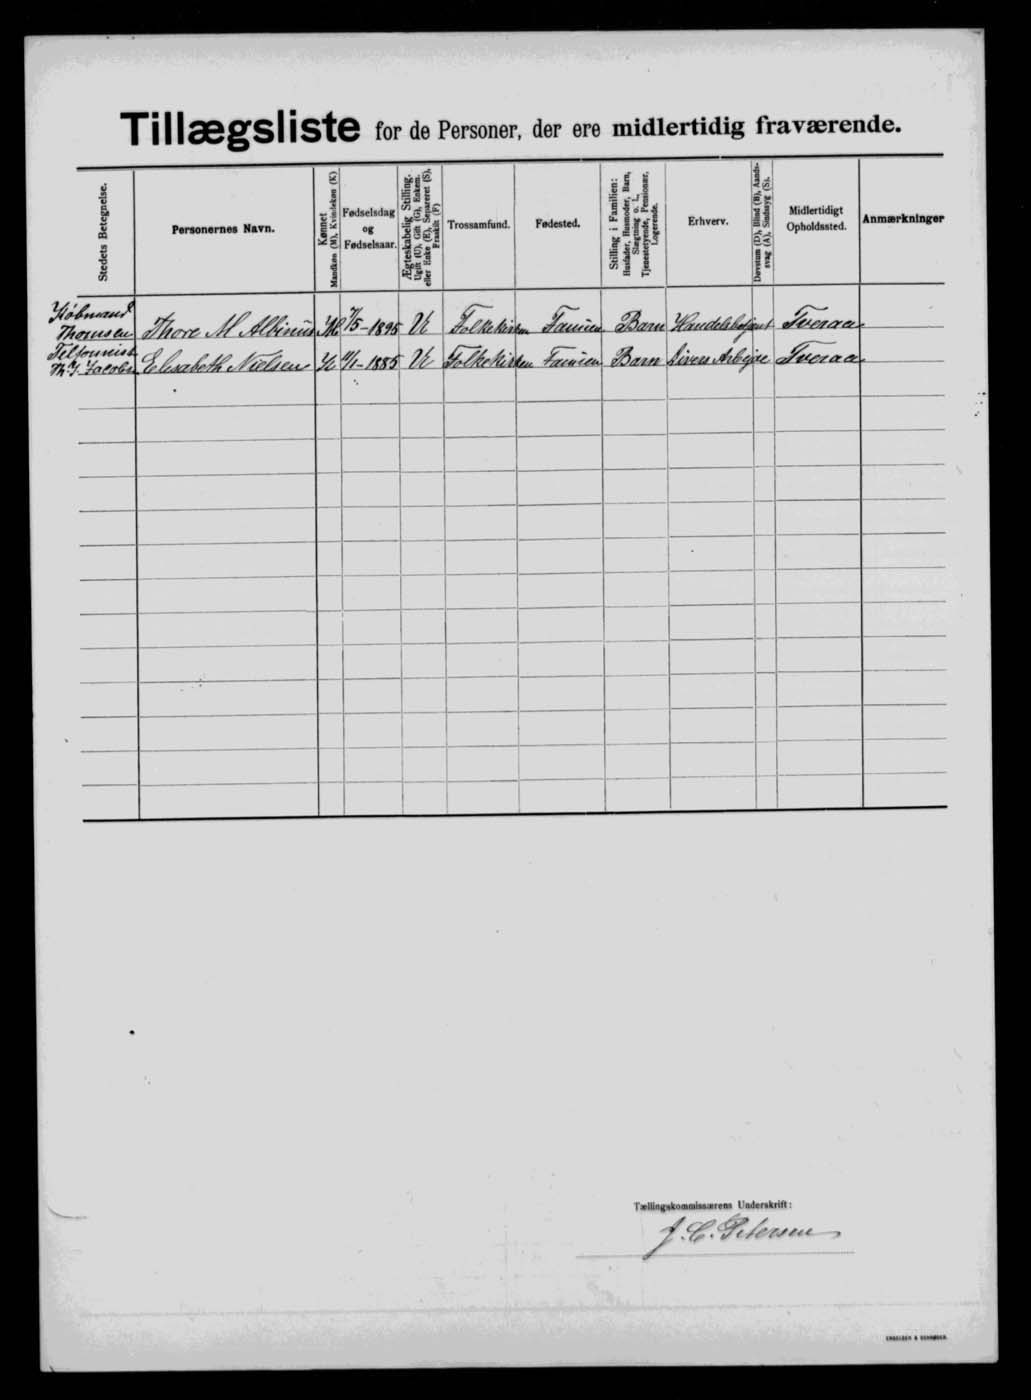 Tillægsliste for de Personer, der ere midlertidig fraværende.
Stedets Betegnelse.
Personernes Navn.
Kønnet
Mandkøn (M), Kvindekøn (K)
Fødselsdag
og
Fødselsaar.
Ægteskabelig Stilling.
Ugift (U), Gift (G), Enkem.
eller Enke (E), Separeret (S),
Fraskilt (F)
Trossamfund.
Fødested.
Stilling i Familien:
Husfader, Husmoder, Barn,
Slægtning o. l.,
Tjenestetyende, Pensionær,
Logerende.
Erhverv.
Døvstum (D), Blind (B), Aands-
svag (A), Sindssyg (S).
Midlertidigt
Opholdssted.
Anmærkninger
Købmand
Thomsen Thore M Albinus M 7/5-1895 U Folkekirken Famien Barn Handelsbetjent Tveraa
Telfonnist
Th. J. Jacobsen Elisabeth Nielsen K 11/1-1885 U Folkekirken Famien Barn Divers Arbejde Tveraa
Tællingskommissærens Underskrift:
J. C. Petersen
ENGELSEN & SCHRØDER.